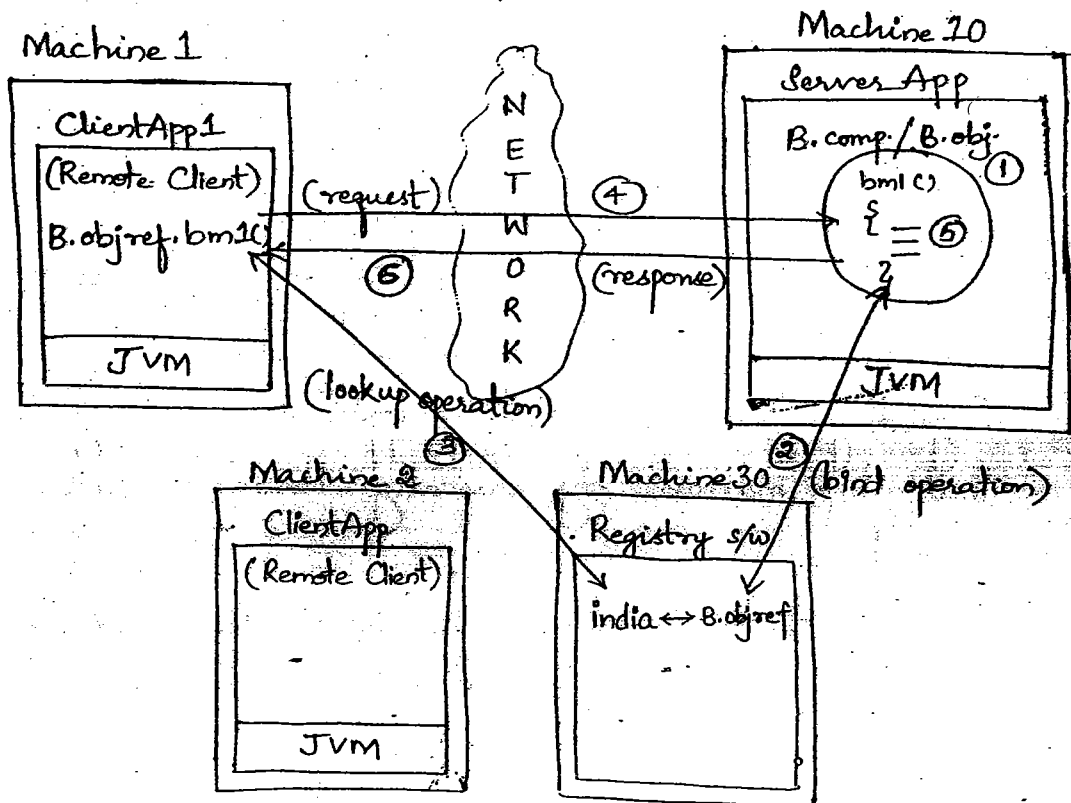 Machine 1
ClientApp1
(Remote Client)
B.objref.bm1()
JVM
NETWORK
(request)
④
⑥
(response)
Machine 10
Server App
B.comp./B.obj.
①
bm1()
{
⑤
}
JVM
(lookup operation)
③
②
(bind operation)
Machine 2
ClientApp
(Remote Client)
JVM
Machine 30
Registry s/w
india ↔ B.objref